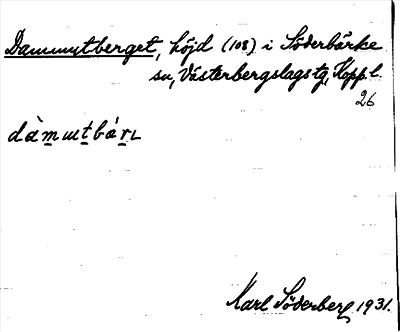 Dammutberget, höjd (108) i Söderbärke
sn, Västerbergslags tg, Kopp l.
26
dàmɯtbárɩ
Karl Söderberg 1931.